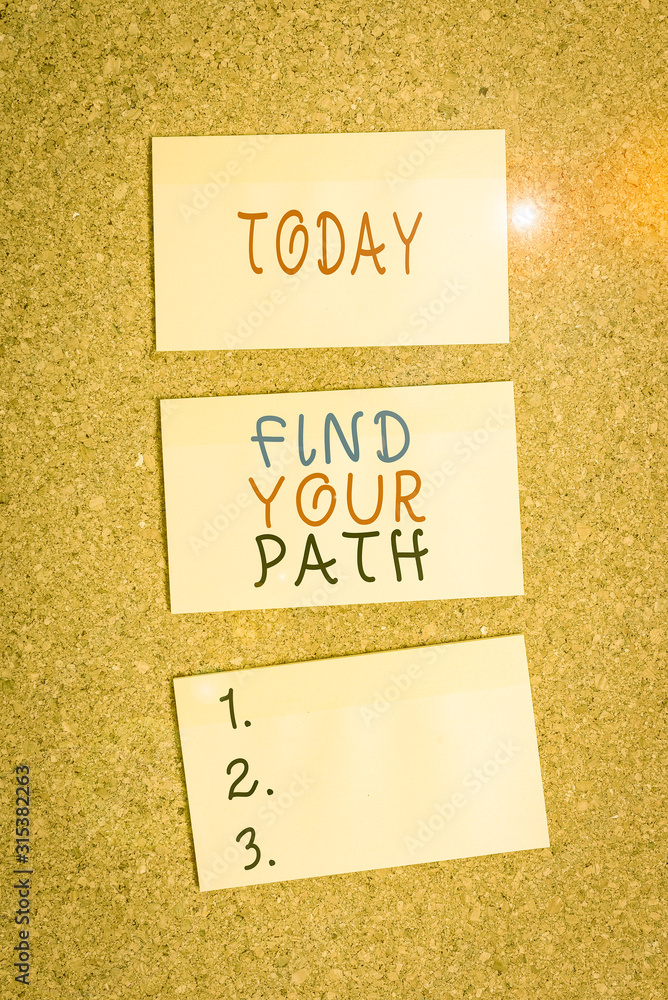 TODAY
FIND
YOUR
PATH
1.
2.
3.
Adobe Stock | #315382263